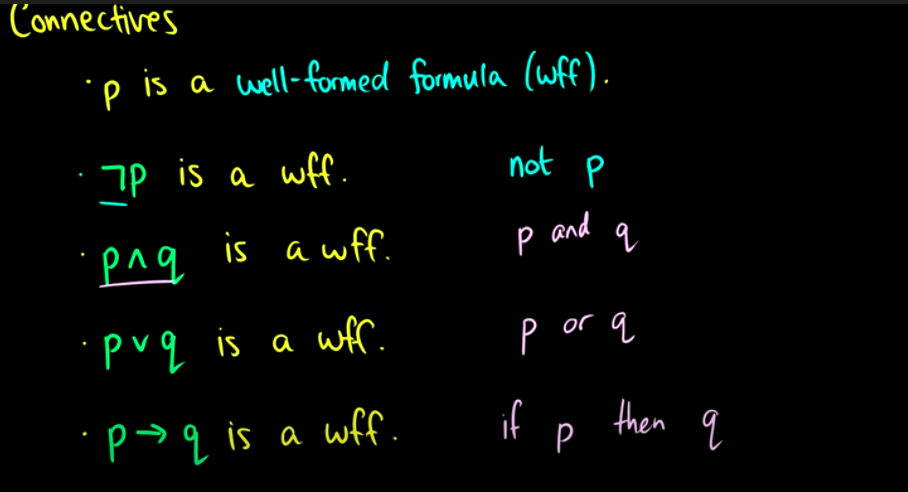 Connectives
· p is a well-formed formula (wff).
· ¬p is a wff. not p
· p ∧ q is a wff. p and q
· p ∨ q is a wff. p or q
· p → q is a wff. if p then q